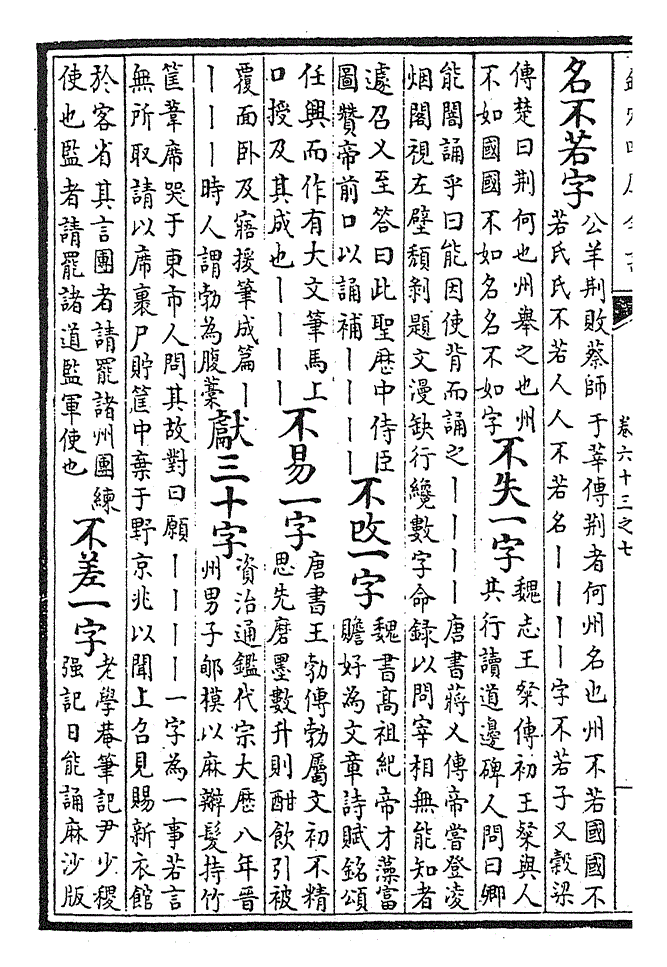 卷六十三之七
名不若字
公羊荆敗蔡師于莘傳荆者何州名也州不若國國不
若氏氏不若人人不若名丨丨丨丨字不若子又榖梁
傳楚曰荆何也州舉之也州
不如國國不如名名不如字
不失一字
魏志王粲傳初王粲與人
其行讀道邊碑人問曰卿
能闇誦乎曰能因使背而誦之丨丨丨丨唐書蔣乂傳帝嘗登凌
烟閣視左壁頽剝題文漫缺行纔數字命錄以問宰相無能知者
遽召乂至答曰此聖歴中侍臣
圖贊帝前口以誦補丨丨丨丨
不改一字
魏書髙祖紀帝才藻富
贍好為文章詩賦銘頌
任興而作有大文筆馬上
口授及其成也丨丨丨丨
不易一字
唐書王勃傳勃屬文初不精
思先磨墨數升則酣飲引被
覆面卧及寤援筆成篇丨
丨丨丨時人謂勃為腹藁
獻三十字
資治通鑑代宗大歴八年晉
州男子郇模以麻辮髮持竹
筐葦席哭于東市人問其故對曰願丨丨丨丨一字為一事若言
無所取請以席裹尸貯筐中棄于野京兆以聞上召見賜新衣館
於客省其言團者請罷諸州團練
使也監者請罷諸道監軍使也
不差一字
老學菴筆記尹少稷
强記日能誦麻沙版